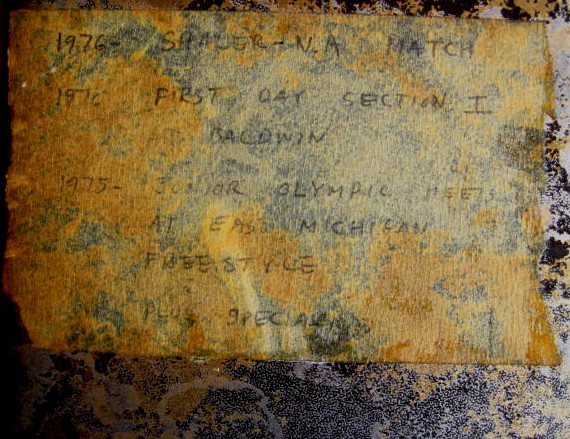 1976- SHALER-N.A MATCH
1976 FIRST DAY SECTION I
AT BALDWIN
1975- JUNIOR OLYMPIC MEETS
AT EAST MICHIGAN
FREESTYLE
PLUS SPECIAL